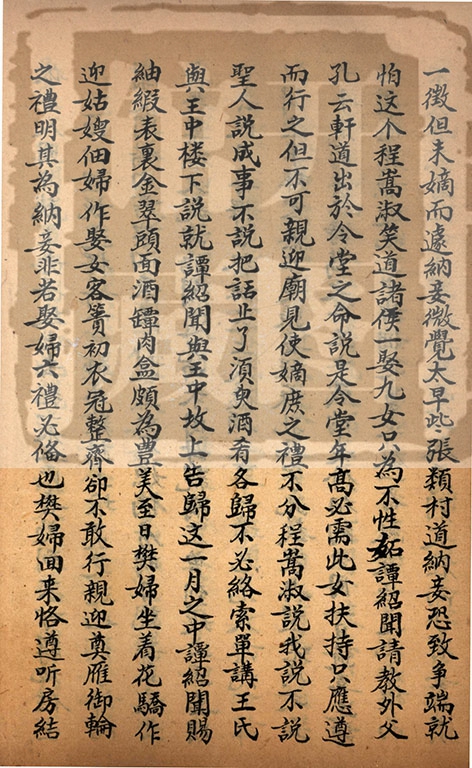 一徵但未嫡而遽納妾微覺太早些張類村道納妾恐致争端就
怕这个程嵩淑笑道諸侯一娶九女只為不性妬譚紹聞請教外父
孔云軒道出於令堂之命說是令堂年高必需此女扶持只應遵
而行之但不可親迎廟見使嫡庶之禮不分程嵩淑說我說不說
聖人說成事不說把話止了湏臾酒肴各歸不必絡索單講王氏
與王中楼下說就譚紹聞與王中坟上告歸这一月之中譚紹聞賜
紬緞表裏金翠頭面酒罈肉盒頗為豊美至日樊婦坐着花轎作
迎姑嫂佃婦作娶女客簀初衣冠整齊卻不敢行親迎奠雁御輪
之禮明其為納妾非若娶婦六禮必俻也樊婦回来恪遵听房結